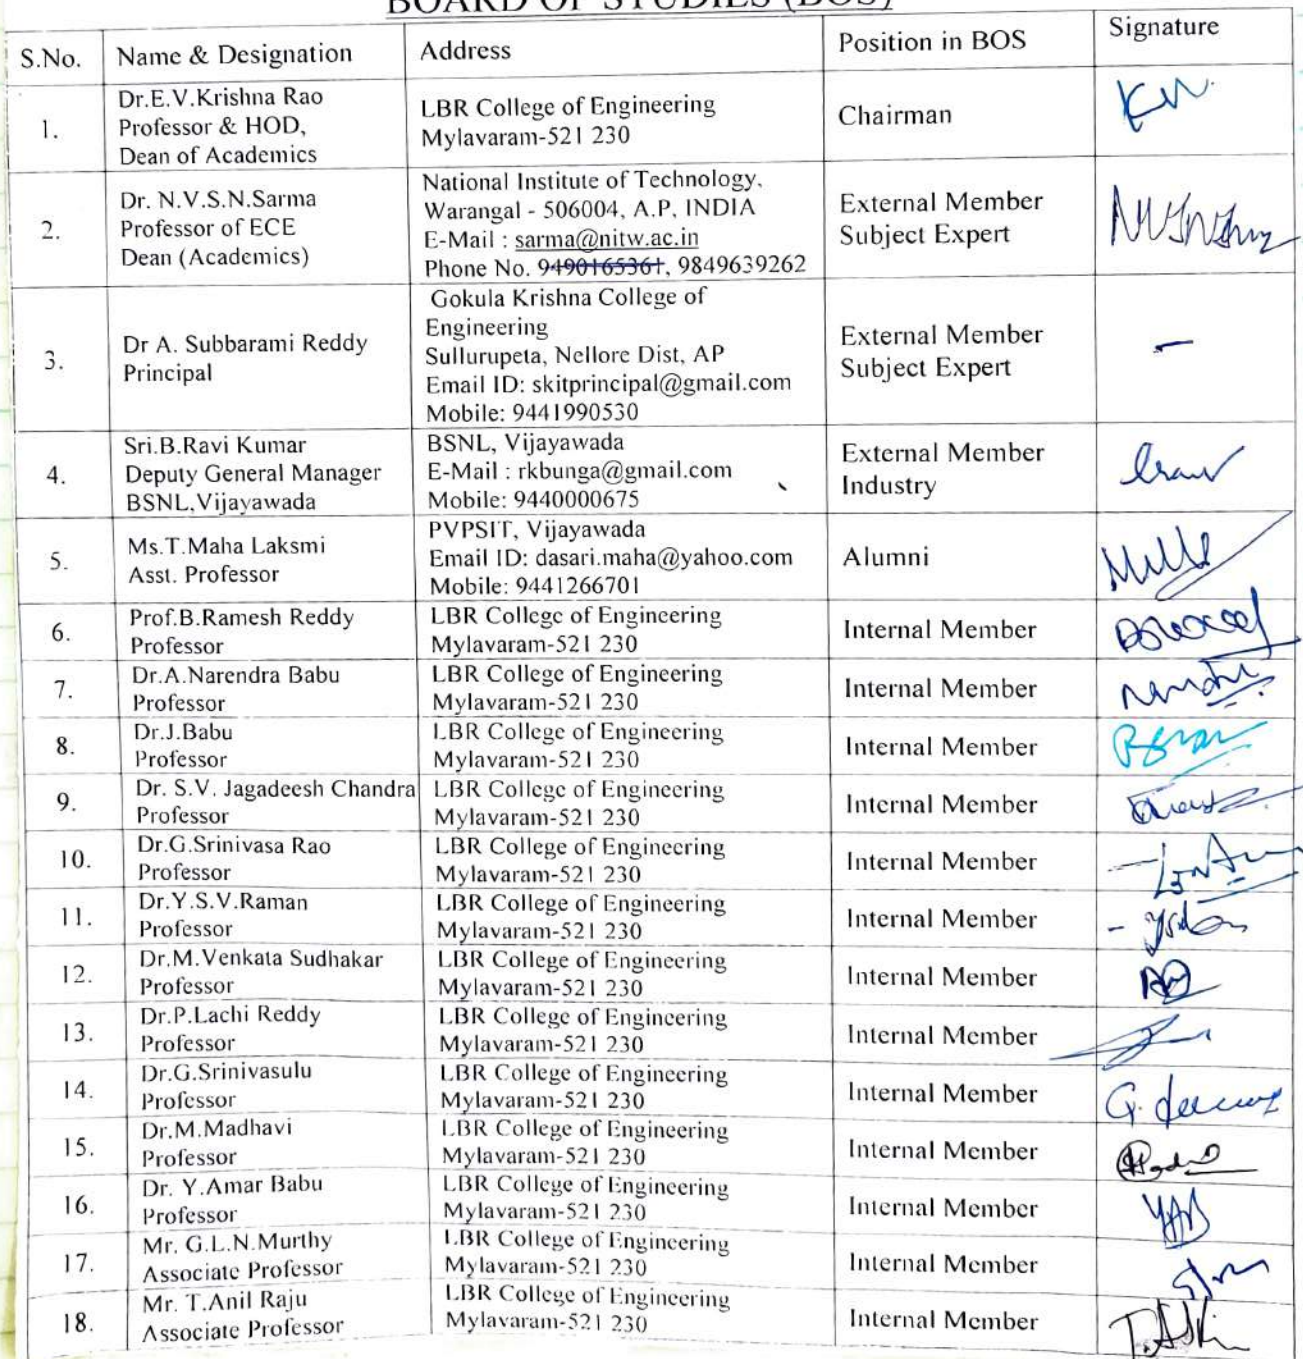 BOARD OF STUDIES (BOS)
S.No. Name & Designation Address Position in BOS Signature
1.
Dr.E.V.Krishna Rao
Professor & HOD,
Dean of Academics
LBR College of Engineering
Mylavaram-521 230
Chairman
2.
Dr. N.V.S.N.Sarma
Professor of ECE
Dean (Academics)
National Institute of Technology,
Warangal - 506004, A.P, INDIA
E-Mail : sarma@nitw.ac.in
Phone No. 9490165361, 9849639262
External Member
Subject Expert
3.
Dr A. Subbarami Reddy
Principal
Gokula Krishna College of
Engineering
Sullurupeta, Nellore Dist, AP
Email ID: skitprincipal@gmail.com
Mobile: 9441990530
External Member
Subject Expert
-
4.
Sri.B.Ravi Kumar
Deputy General Manager
BSNL,Vijayawada
BSNL, Vijayawada
E-Mail : rkbunga@gmail.com
Mobile: 9440000675
External Member
Industry
5.
Ms.T.Maha Laksmi
Asst. Professor
PVPSIT, Vijayawada
Email ID: dasari.maha@yahoo.com
Mobile: 9441266701
Alumni
6.
Prof.B.Ramesh Reddy
Professor
LBR College of Engineering
Mylavaram-521 230
Internal Member
7.
Dr.A.Narendra Babu
Professor
LBR College of Engineering
Mylavaram-521 230
Internal Member
8.
Dr.J.Babu
Professor
LBR College of Engineering
Mylavaram-521 230
Internal Member
9.
Dr. S.V. Jagadeesh Chandra
Professor
LBR College of Engineering
Mylavaram-521 230
Internal Member
10.
Dr.G.Srinivasa Rao
Professor
LBR College of Engineering
Mylavaram-521 230
Internal Member
11.
Dr.Y.S.V.Raman
Professor
LBR College of Engineering
Mylavaram-521 230
Internal Member
12.
Dr.M.Venkata Sudhakar
Professor
LBR College of Engineering
Mylavaram-521 230
Internal Member
13.
Dr.P.Lachi Reddy
Professor
LBR College of Engineering
Mylavaram-521 230
Internal Member
14.
Dr.G.Srinivasulu
Professor
LBR College of Engineering
Mylavaram-521 230
Internal Member
15.
Dr.M.Madhavi
Professor
LBR College of Engineering
Mylavaram-521 230
Internal Member
16.
Dr. Y.Amar Babu
Professor
LBR College of Engineering
Mylavaram-521 230
Internal Member
17.
Mr. G.L.N.Murthy
Associate Professor
LBR College of Engineering
Mylavaram-521 230
Internal Member
18.
Mr. T.Anil Raju
Associate Professor
LBR College of Engineering
Mylavaram-521 230
Internal Member